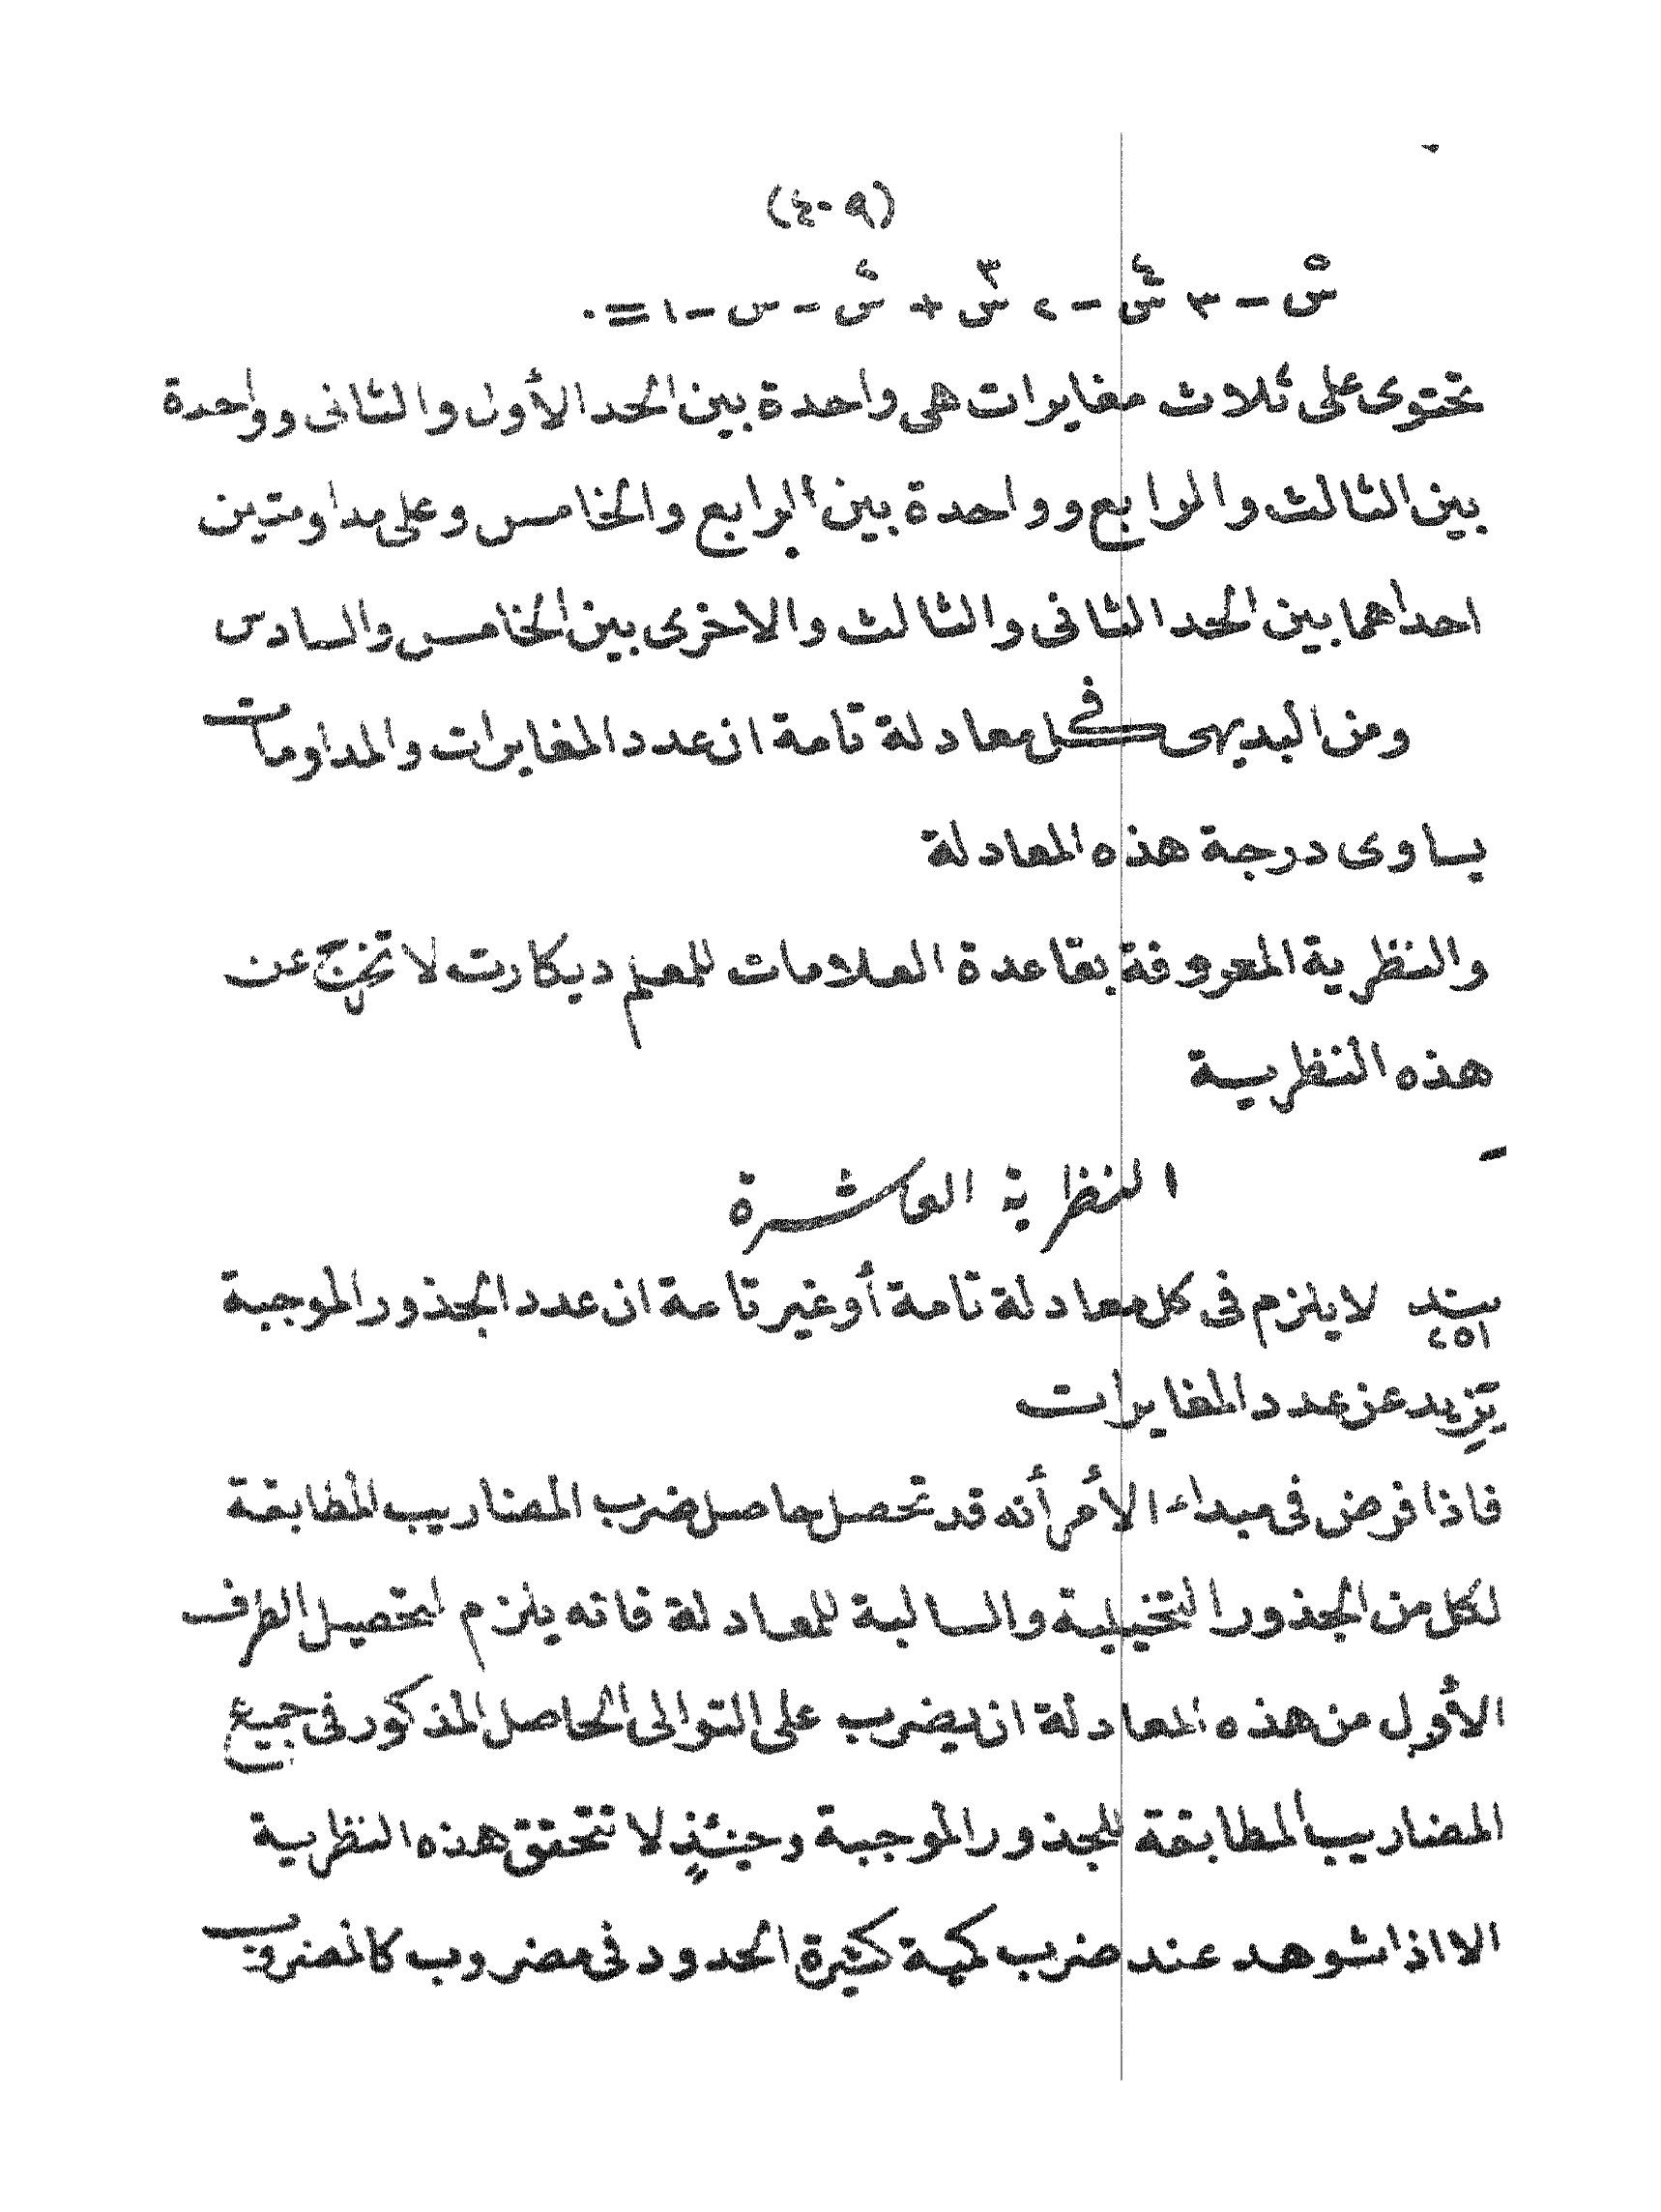 (٤٠٩)
س^٥ - ٣ س^٤ - ٢ س^٣ + س^٢ - س - ١ = ٠
تحتوى على ثلاث مغايرات هى واحدة بين الحد الأول والثانى وواحدة
بين الثالث والرابع وواحدة بين الرابع والخامس وعلى مداومتين
احداهما بين الحد الثانى والثالث والاخرى بين الخامس والسادس
ومن البديهى فى كل معادلة تامة ان عدد المغايرات والمداومات
يساوى درجة هذه المعادلة
والنظرية المعروفة بقاعدة العلامات للمعلم ديكارت لا تخرج عن
هذه النظرية
النظرية العاشرة
بند ٢٥١ لا يلزم فى كل معادلة تامة أو غير تامة ان عدد الجذور الموجبة
يزيد عن عدد المغايرات
فاذا فرض فى مبداء الأمر أنه قد تحصل حاصل ضرب المضاريب المطابقة
لكل من الجذور التخيلية والسالبة للمعادلة فانه يلزم لتحصيل الطرف
الأول من هذه المعادلة ان يضرب على التوالى الحاصل المذكور فى جميع
المضاريب المطابقة للجذور الموجبة وحينئذ لا تتحقق هذه النظرية
الا اذا شوهد عند ضرب كمية كثيرة الحدود فى مضروب كالمضروب